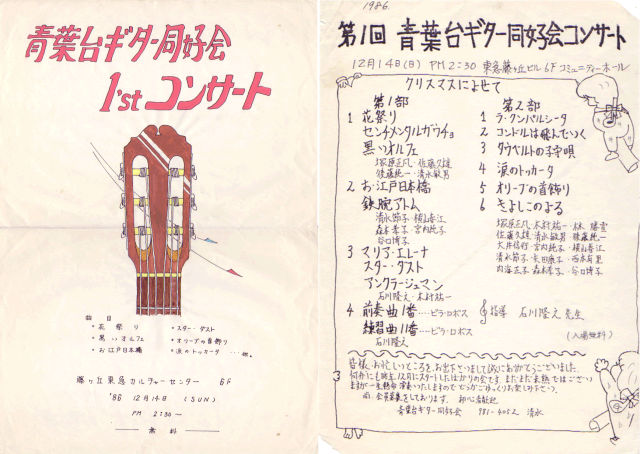 青葉台ギター同好会
1st コンサート
曲目
・花祭り
・スター・ダスト
・黒いオルフェ
・オリーブの首飾り
・お江戸日本橋
・涙のトッカータ …他.
藤ヶ丘東急カルチャーセンター 6F
'86 12月14日 (SUN)
PM 2:30~
無料
1986.
第1回 青葉台ギター同好会コンサート
12月14日(日) PM2:30 東急藤ヶ丘ビル 6F コミュニティーホール
クリスマスによせて
第1部
1 花祭り
センチメンタルガウチョ
黒いオルフェ
塚原正凡・佐藤久雄
後藤純一・清水敏男
2 お・江戸日本橋
鉄腕アトム
清水節子・横山春江
森本孝子・宮内純子
谷口博子
3 マリア・エレーナ
スター・ダスト
アンクラージュマン
石川隆之・木村祐一
4 前奏曲1番‥‥ビラ・ロボス
練習曲11番‥‥ビラ・ロボス
石川隆之
第2部
1 ラ・クンパルシータ
2 コンドルは飛んでいく
3 タウベルトの子守唄
4 涙のトッカータ
5 オリーブの首飾り
6 きよしこのよる
塚原正凡・木村祐一・林 勝雲
佐藤久雄・清水敏男・後藤純一
大井信行・宮内純子・横山春江
清水節子・矢田康子・西本有里
内海正子・森本孝子・谷口博子
指導 石川隆之先生
(入場無料)
皆様、お忙しいところを、お出下さいまして誠にありがとうございました。
尚、会員募集をしております。
青葉台ギター同好会 981-4052 清水